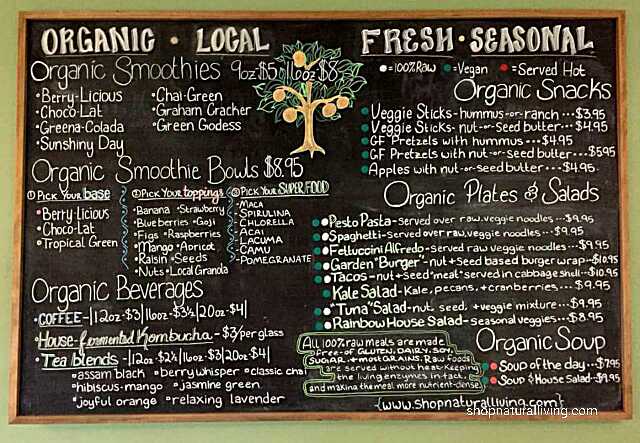 ORGANIC • LOCAL
FRESH • SEASONAL
Organic Smoothies 9oz $5 16oz $8
• Berry-Licious
• Choco-Lat
• Greena-Colada
• Sunshiny Day
• Chai-Green
• Graham Cracker
• Green Godess
Organic Smoothie Bowls $8.95
① Pick Your base
• Berry Licious
• Choco-Lat
• Tropical Green
② Pick Your toppings
• Banana • Strawberry
• Blueberries • Goji
• Figs • Raspberries
• Mango • Apricot
• Raisin • Seeds
• Nuts • Local Granola
③ Pick Your SUPER FOOD
- MACA
- SPIRULINA
- CHLORELLA
- ACAI
- LACUMA
- CAMU
- POMEGRANATE
Organic Beverages
• COFFEE - |12oz $3|16oz $3½|20oz $4|
• House-fermented Kombucha - $3/per glass
• Tea blends - |12oz $2½|16oz $3|20oz $4|
• assam black • berry whisper • classic chai
• hibiscus-mango • jasmine green
• joyful orange • relaxing lavender
● = 100% Raw ● = Vegan ● = Served Hot
Organic Snacks
Veggie Sticks - hummus -or- ranch ... $3.95
Veggie Sticks - nut -or- Seed butter ... $4.95
GF Pretzels with hummus --- $4.95
GF Pretzels with nut -or- Seed butter ... $5.95
Apples with nut -or- seed butter --- $4.95
Organic Plates & Salads
Pesto Pasta - served over raw, veggie noodles ... $9.95
Spaghetti - served over raw, veggie noodles --- $9.95
Fettuccini Alfredo - served raw veggie noodles ... $9.95
Garden "Burger" - nut + Seed based burger wrap -- $10.95
Tacos - nut + Seed "meat" served in cabbage shell --- $10.95
Kale Salad - Kale, pecans, + cranberries --- $9.95
"Tuna" Salad - nut, seed, + veggie mixture --- $9.95
Rainbow House Salad - seasonal veggies --- $8.95
All 100% raw meals are made
free-of GLUTEN, DAIRY, SOY,
SUGAR, + most GRAINS. Raw foods
are served without heat-Keeping
the living enzymes in-tact,
and making the meal more nutrient-dense
Organic Soup
Soup of the day --- $7.95
Soup & House Salad -- $9.95
{www.shopnaturalliving.com}
shopnaturalliving.com